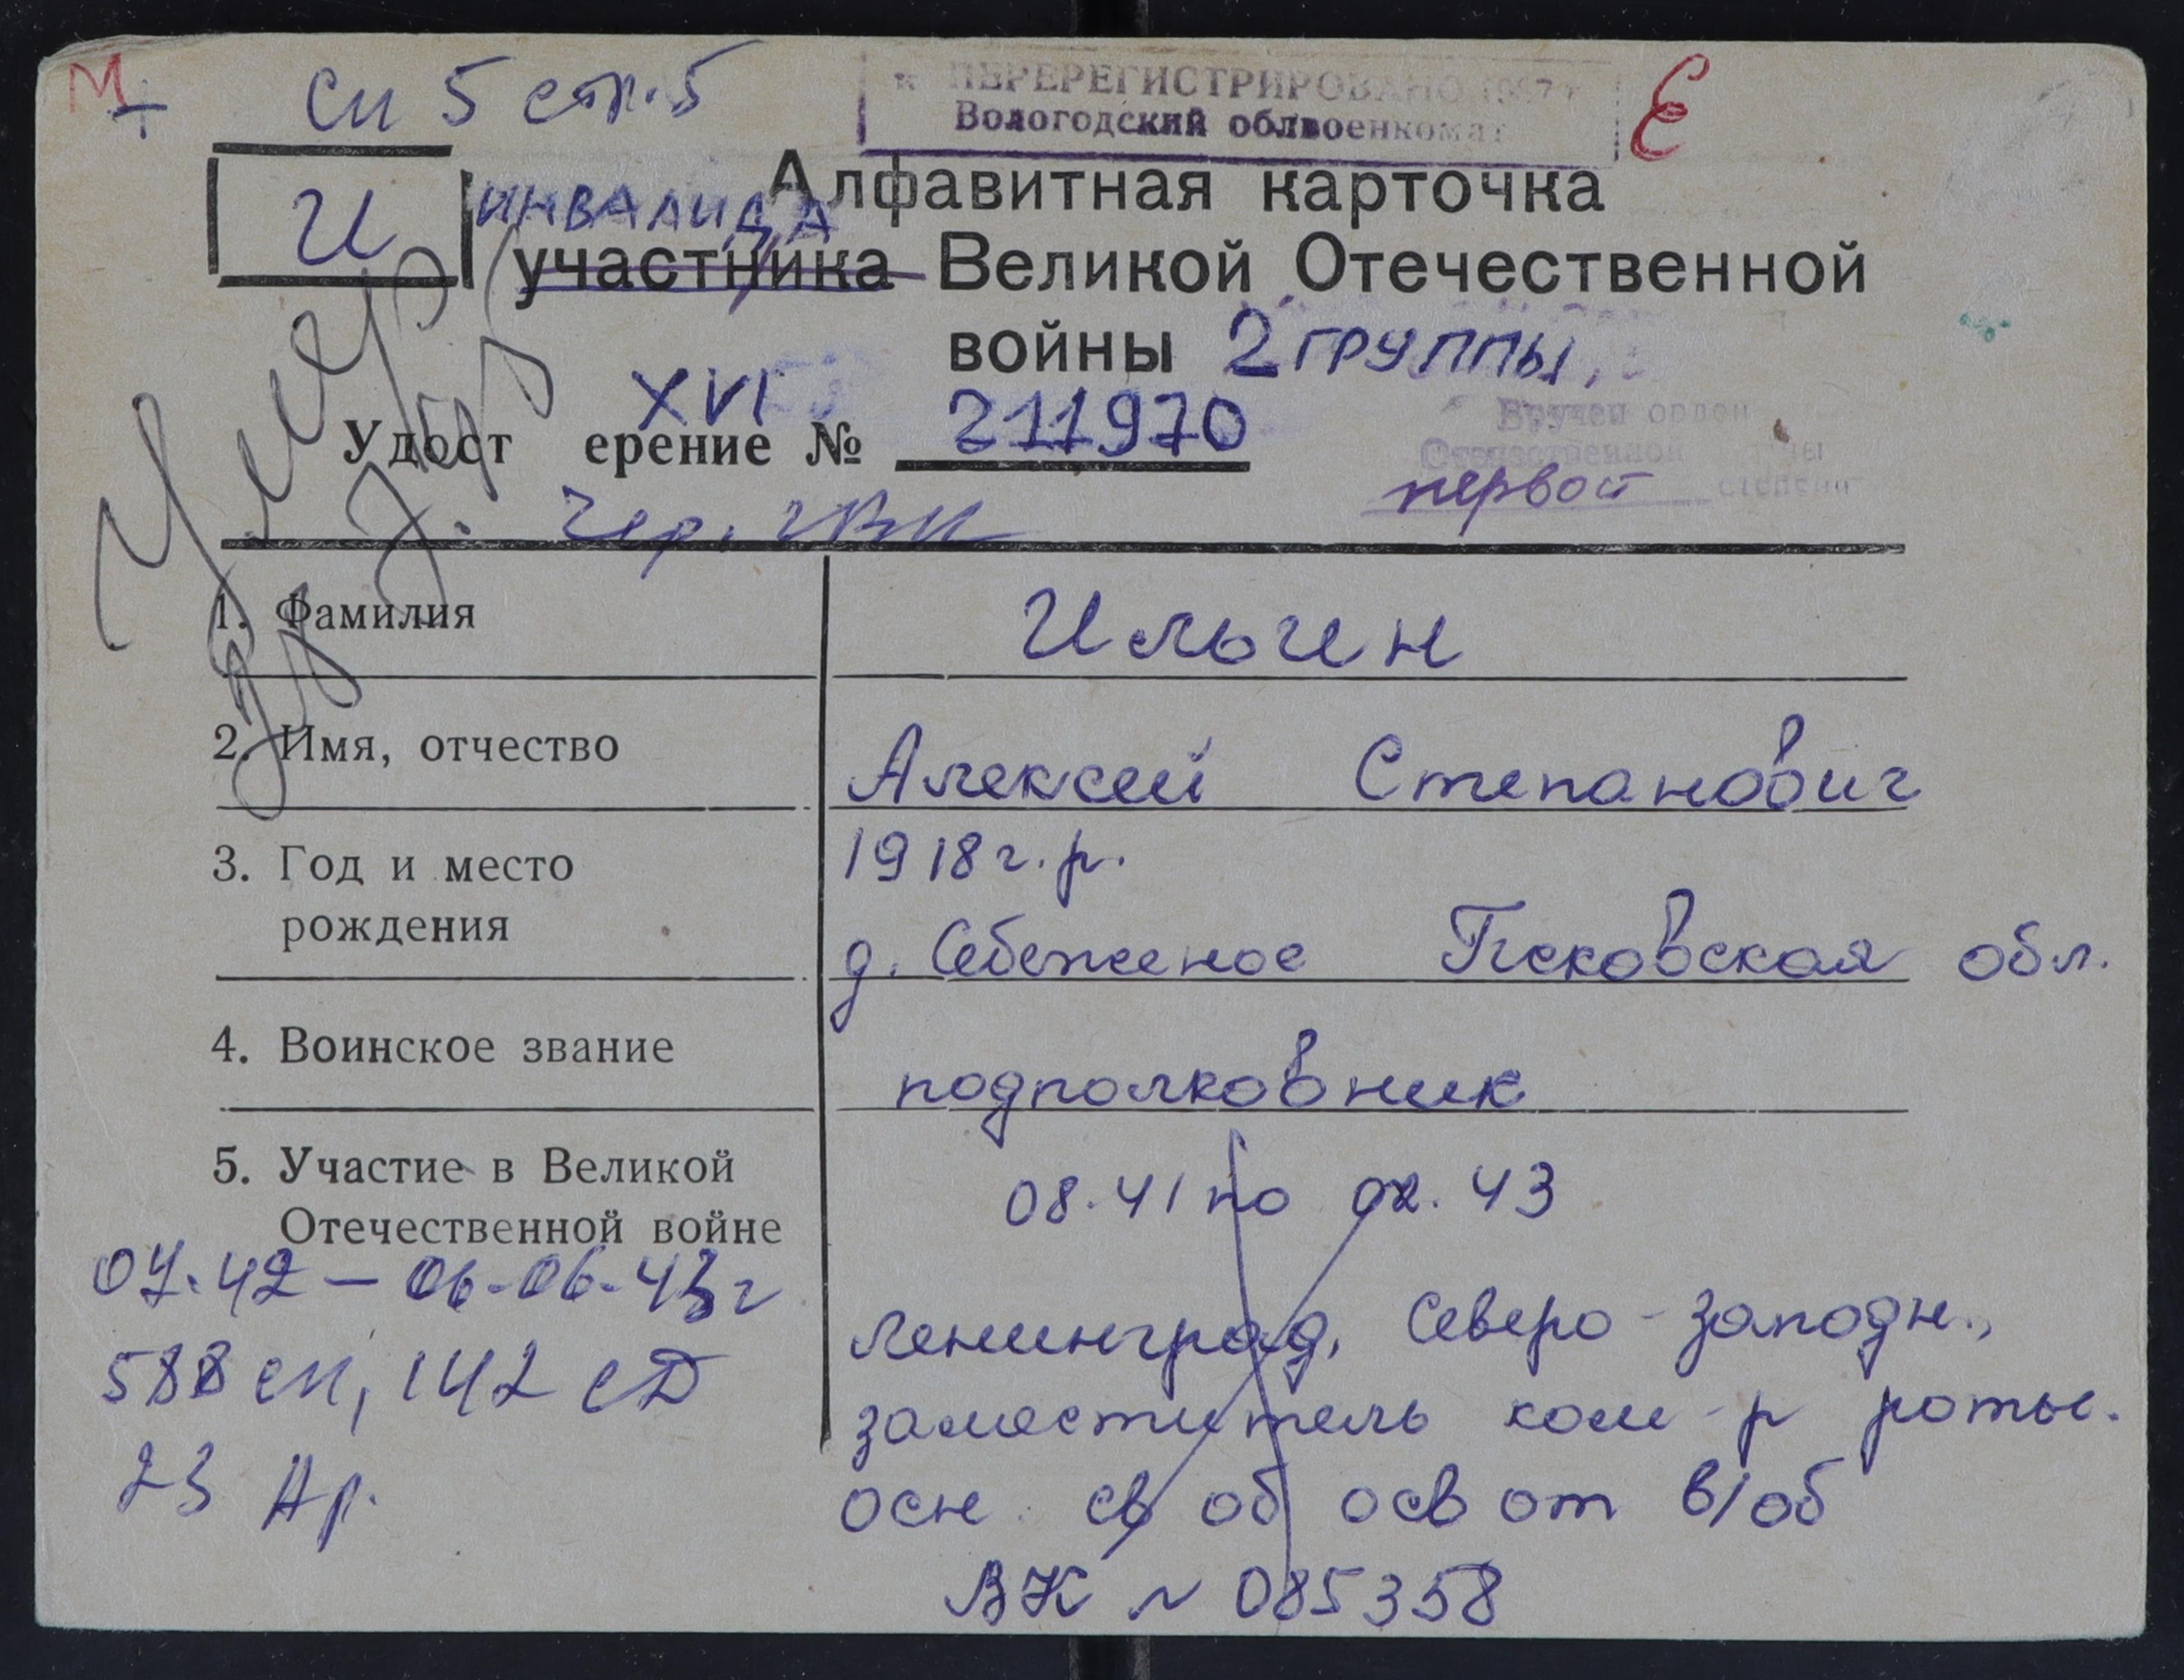 М
+ сп 5 стр. 5
ПЕРЕРЕГИСТРИРОВАНО 1987 г
Вологодский облвоенкомат
Е
И
ИНВАЛИДА
Алфавитная карточка
участника Великой Отечественной
войны 2 ГРУППЫ
XVI
Удост ерение № 211970
Вручен орден
Отечественной войны
первой степени
Умер
Чер. ГВК
1. Фамилия
Ильин
2. Имя, отчество
Алексей Степанович
3. Год и место
рождения
1918 г. р.
д. Себежское Псковская обл.
4. Воинское звание
подполковник
5. Участие в Великой
Отечественной войне
08.41 по 02.43
Ленинград, Северо-западн.,
заместитель ком-р роты.
осн. св об осв от в/об
ВК N 085358
07.42 — 06-06-43г
588 сп, 142 СД
23 Ар.